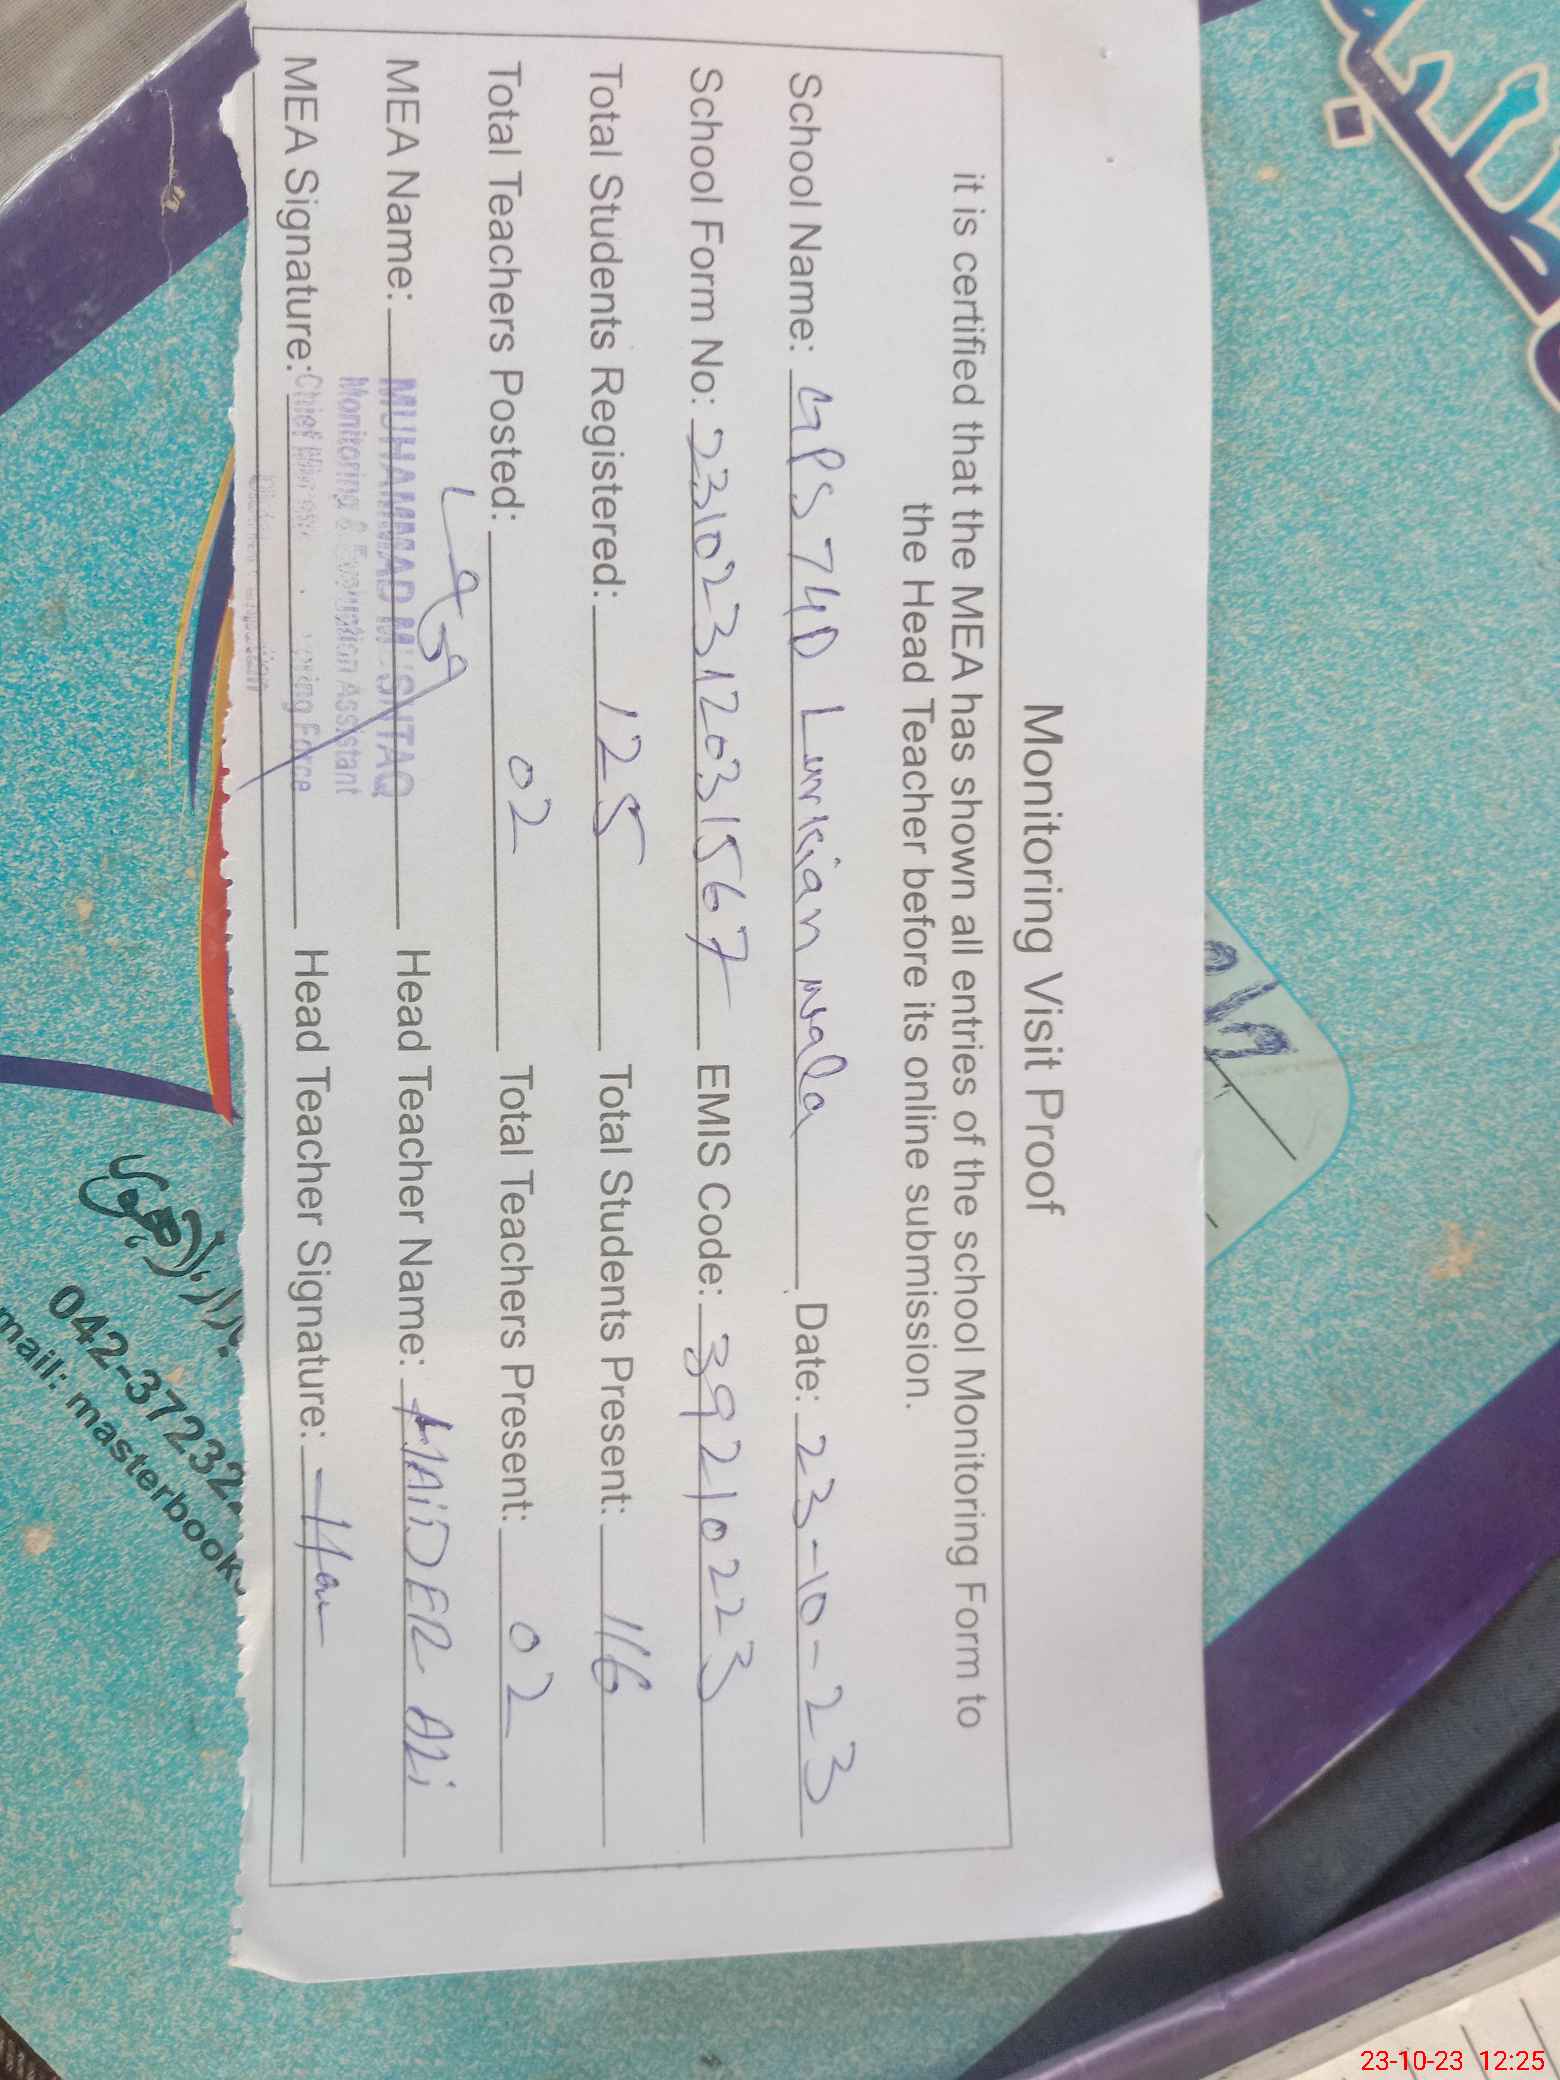 Monitoring Visit Proof
it is certified that the MEA has shown all entries of the school Monitoring Form to
the Head Teacher before its online submission.
School Name: GPS 74D Lurkianwala Date: 23-10-23
School Form No: 23102312031567 EMIS Code: 39210223
Total Students Registered: 125 Total Students Present: 116
Total Teachers Posted: 02 Total Teachers Present: 02
MEA Name: MUHAMMAD MUSHTAQ Head Teacher Name: HAIDER ALi
Monitoring & Evaluation Assistant
MEA Signature: Chief Force Head Teacher Signature:
042-37232
mail: masterbook
23-10-23 12:25